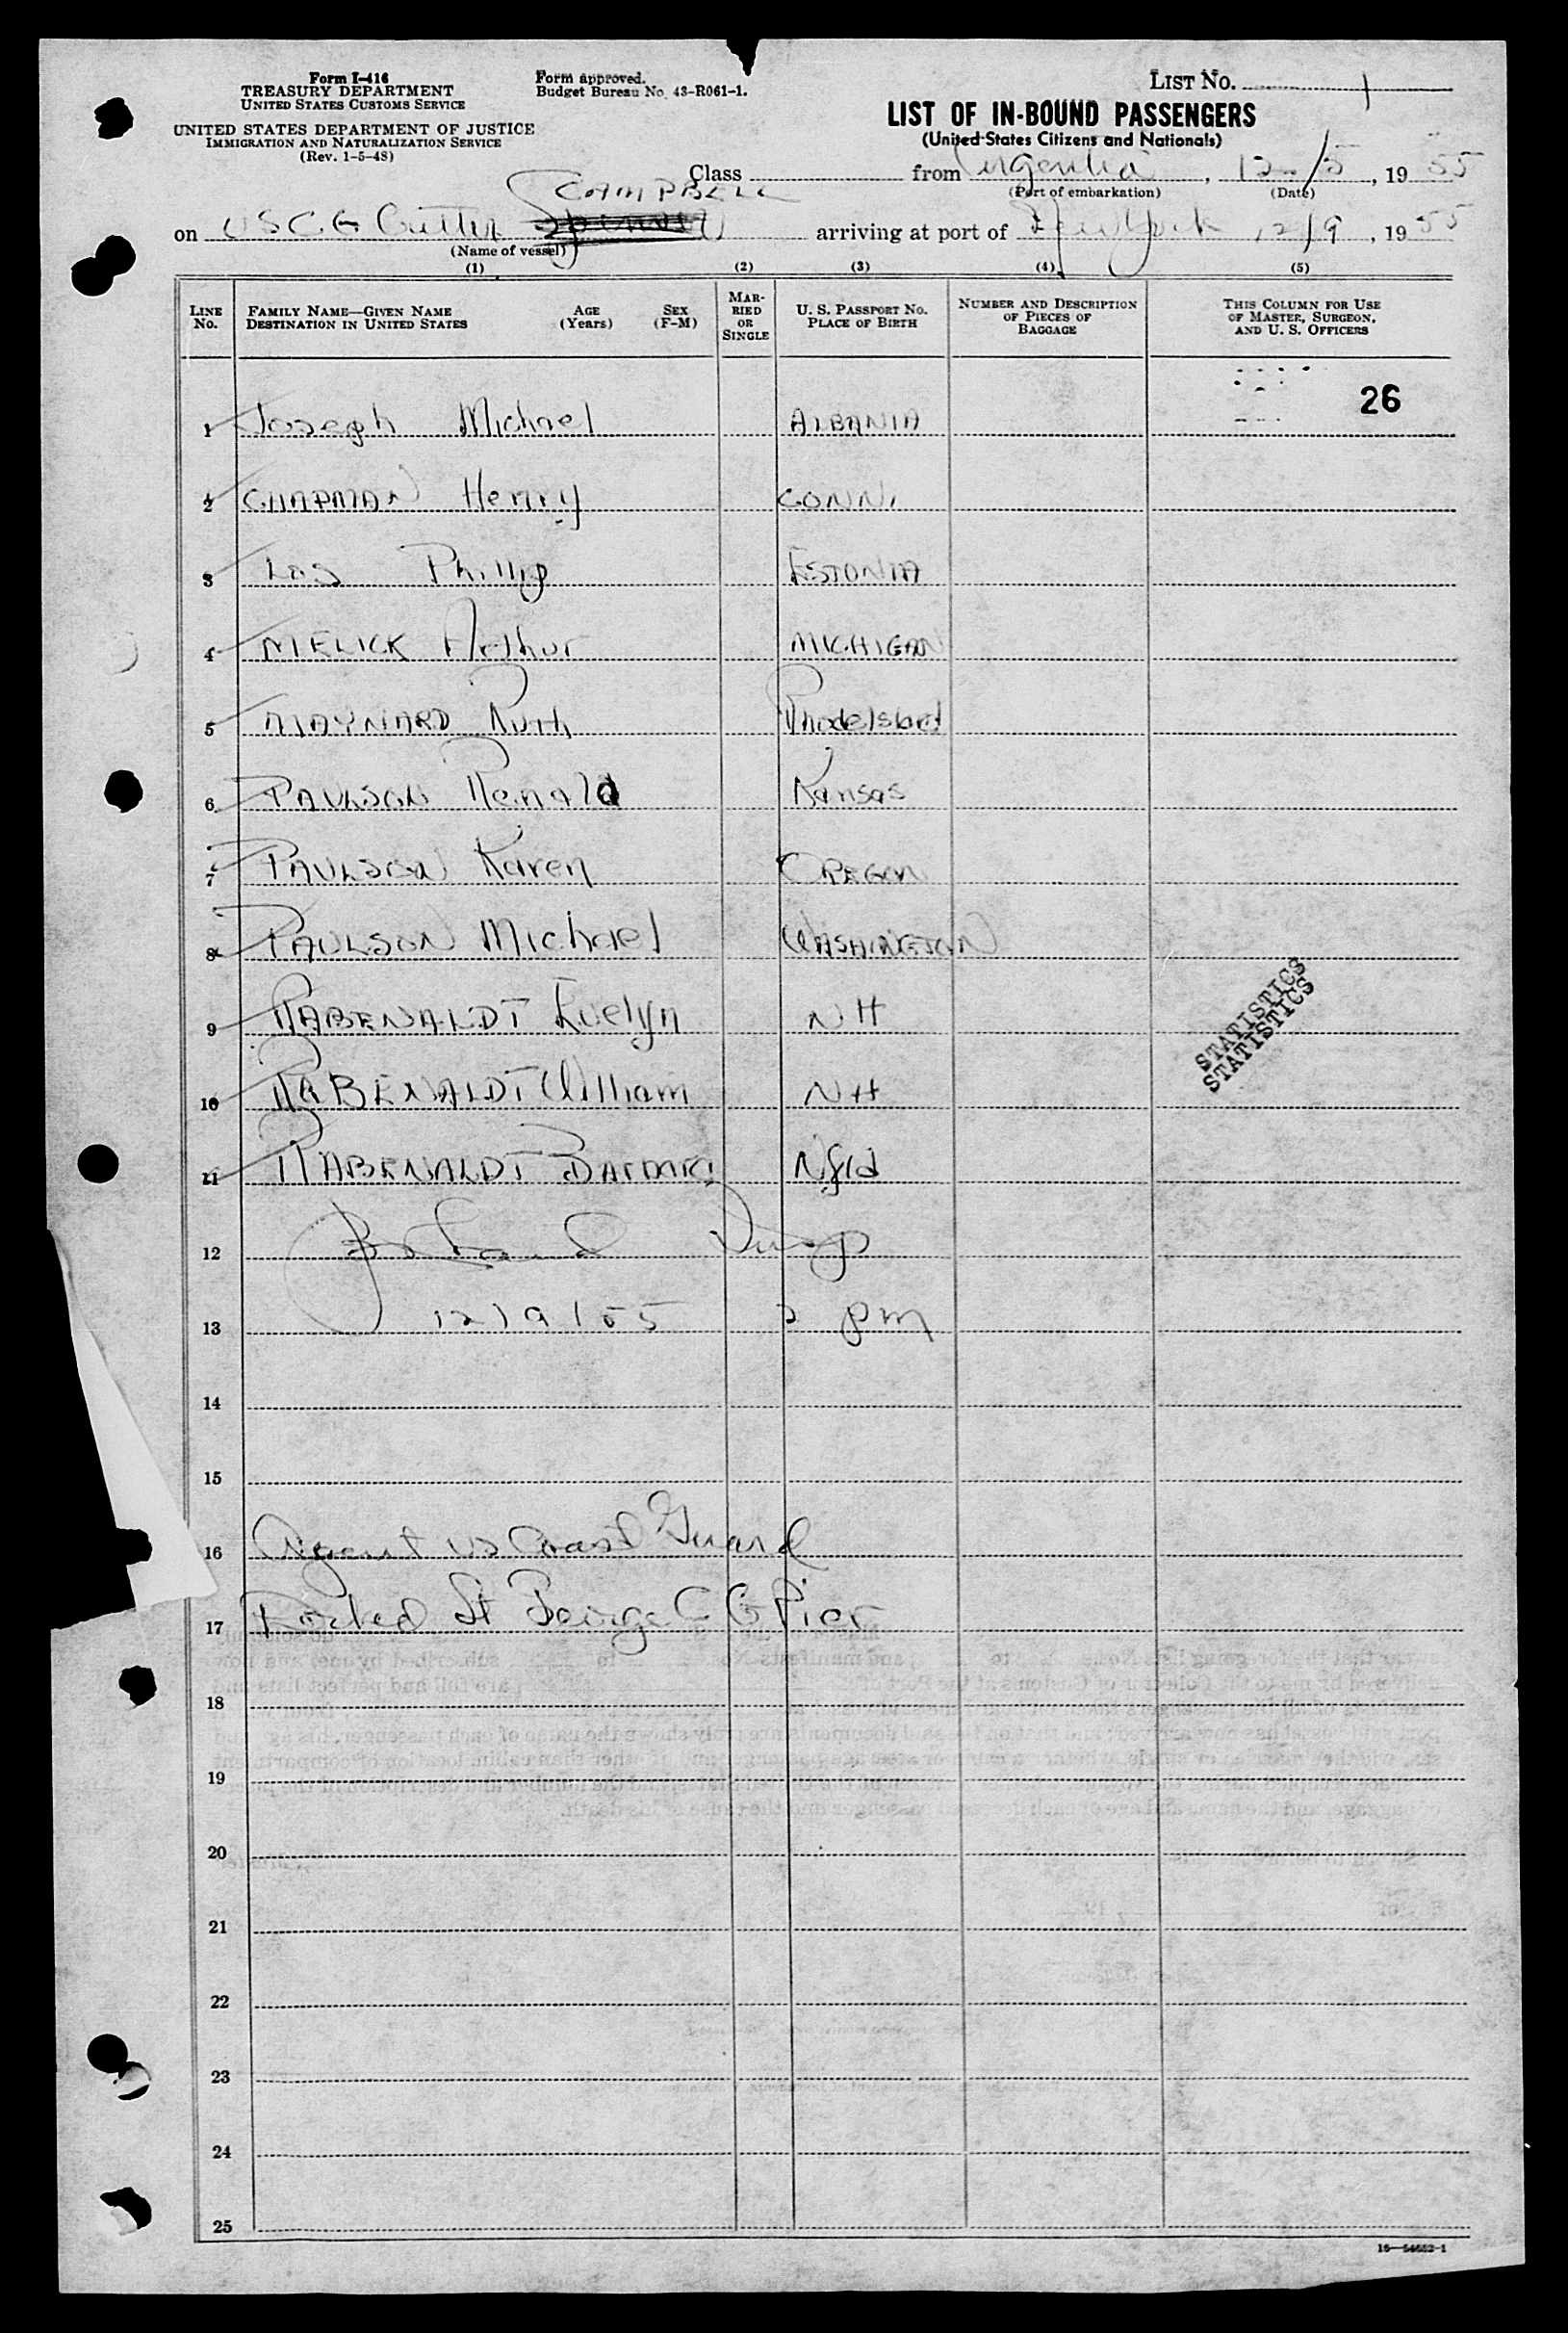 Form I-416
TREASURY DEPARTMENT
UNITED STATES CUSTOMS SERVICE
UNITED STATES DEPARTMENT OF JUSTICE
IMMIGRATION AND NATURALIZATION SERVICE
(Rev. 1-5-48)
Form approved.
Budget Bureau No. 43-R061-1.
LIST NO. 1
LIST OF IN-BOUND PASSENGERS
(United States Citizens and Nationals)
Class from Argentia, 12/5, 1955
(Port of embarkation) (Date)
CAMPBELL
on USCG Cutter arriving at port of New York 12/9, 1955
(Name of vessel)
(1) (2) (3) (4) (5)
LINE No. FAMILY NAME—GIVEN NAME DESTINATION IN UNITED STATES AGE (Years) SEX (F-M) MARRIED OR SINGLE U. S. PASSPORT NO. PLACE OF BIRTH NUMBER AND DESCRIPTION OF PIECES OF BAGGAGE THIS COLUMN FOR USE OF MASTER, SURGEON, AND U. S. OFFICERS
26
1 Joseph Michael ALBANIA
2 CHAPMAN Henry CONN.
3 Los Phillip ESTONIA
4 MELICK Arthur MICHIGAN
5 MAYNARD Ruth Rhode Island
6 PAULSON Renald Kansas
7 PAULSON Karen OREGON
8 PAULSON Michael WASHINGTON
9 RABENALDT Evelyn NH
10 RABENALDT William NH
11 RABENALDT Barbara Nfld
STATISTICS
STATISTICS
12
13 12/9/55 2 pm
14
15
16 Agent US Coast Guard
17 Docked St George C G Pier
18
19
20
21
22
23
24
25
16—54652-1